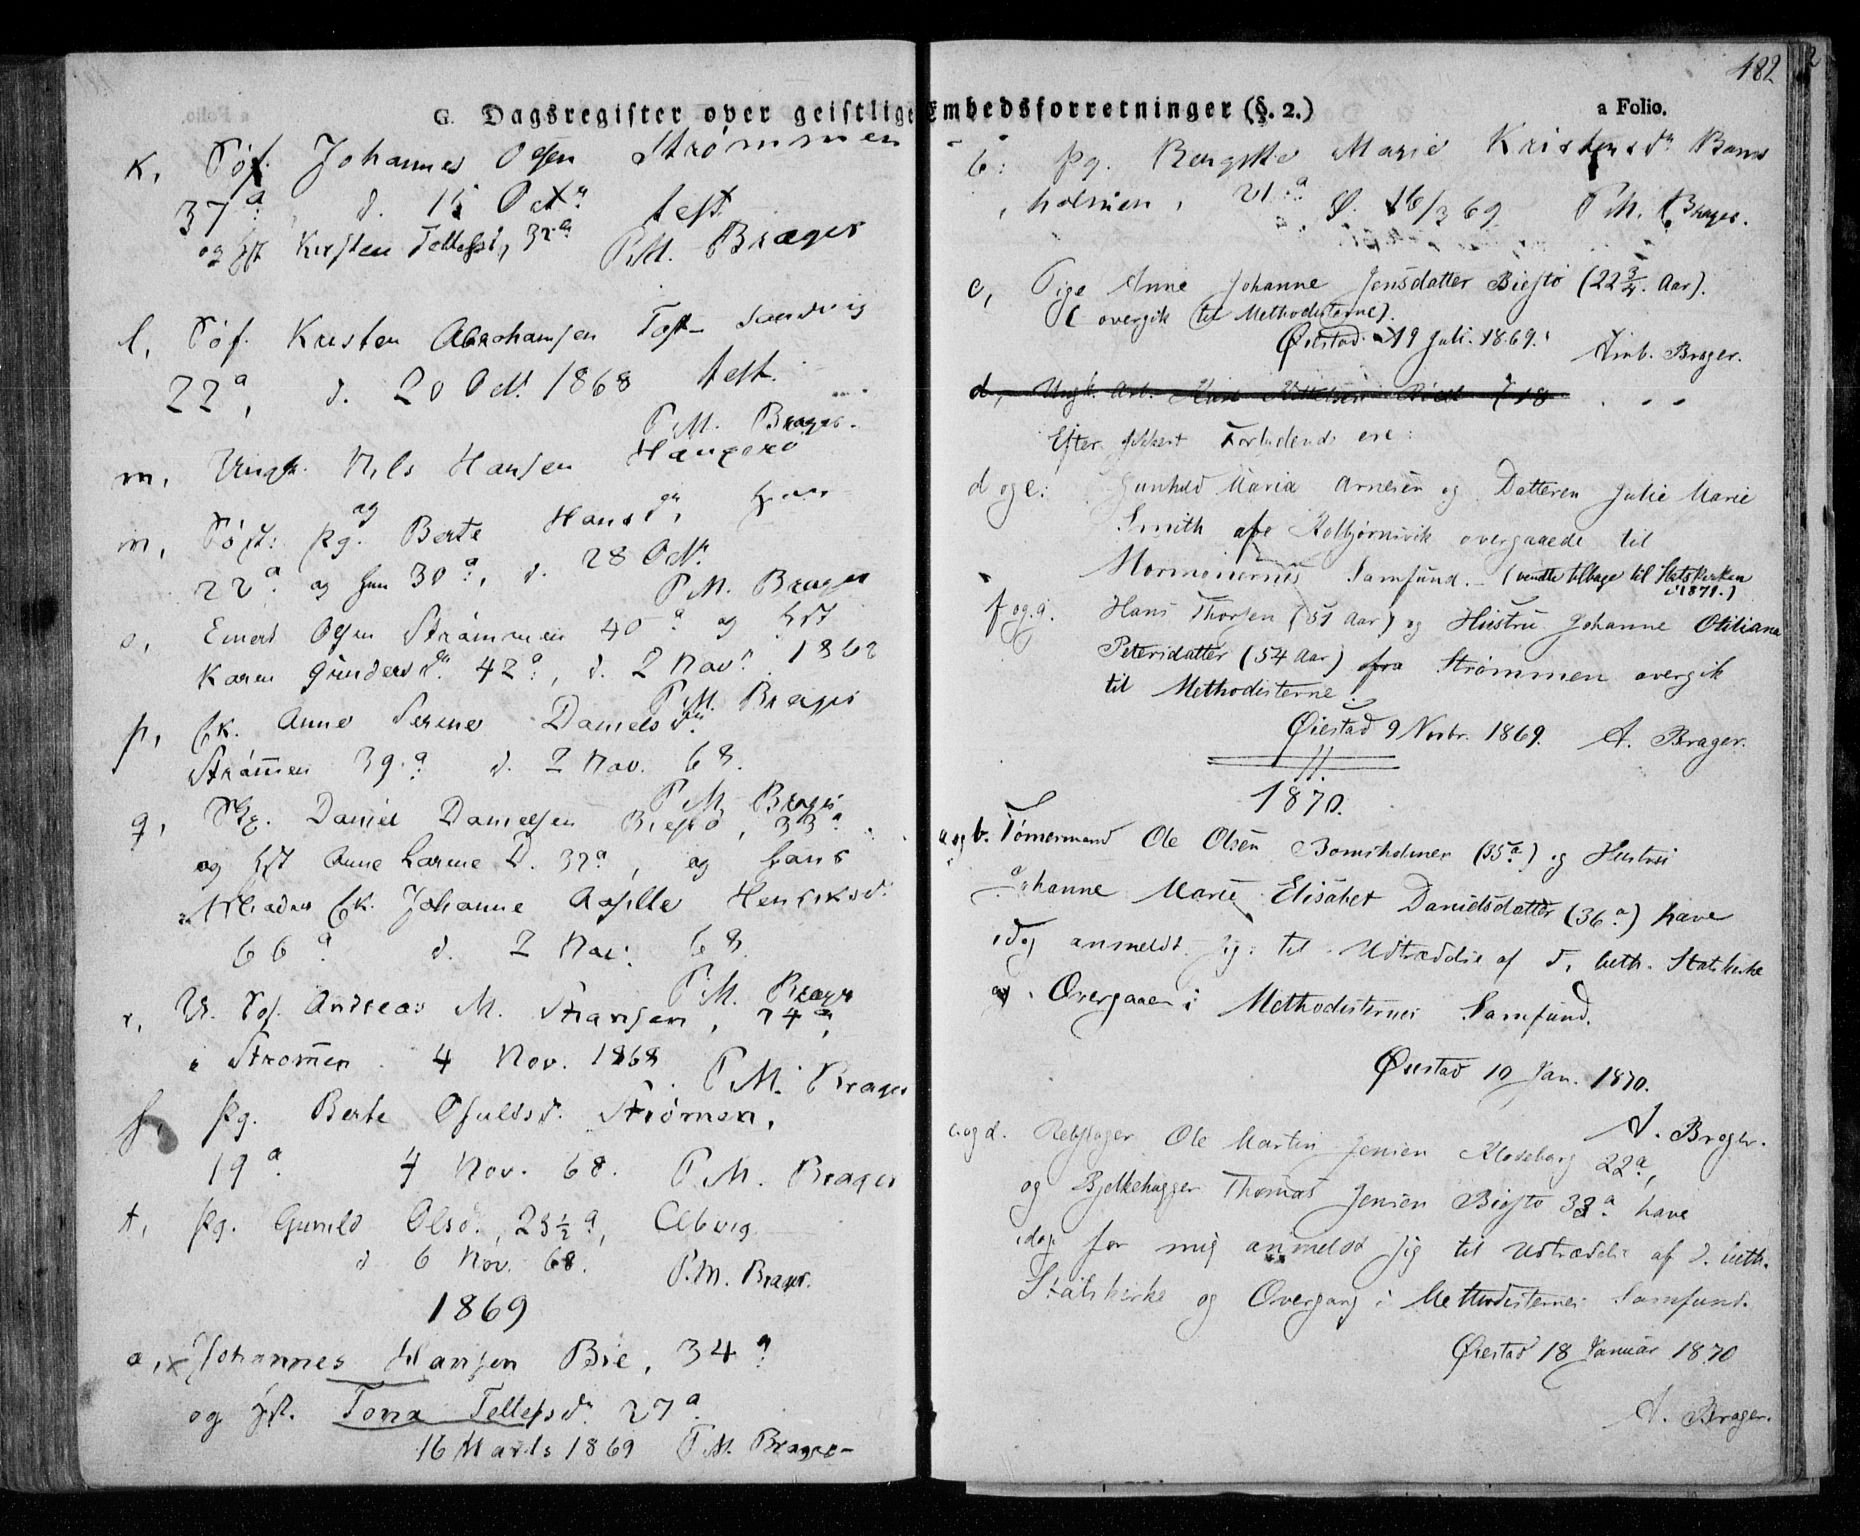 482
G. Dagsregister over geistlige Embedsforretninger (§. 2.)
a Folio.
k, Søf. Johannes Olsen Strømmen
37 a: d. 15 Octr
og Hst Kirsten Tellefsd, 32 a: P.M. Brager
l, Søf. Kristen Abrahamsen Sandvig
22 a, d. 20 Oct. 1868
P.M. Brager.
m, Ungk. Nils Hansen
og
n, pg. Berte Hansdr
22 a og hun 30 a:, d. 28 Oct.
P.M. Brager
o, Einert Olsen Strømmen 40 a og Hst
Karen Gundersdr. 42 a:, d. 2 Nov. 1868
P.M. Brager
p, fk. Anne Serine Danielsdr.
Strømen 39. a: d. 2 Nov. 68.
P.M. Brager
q, Daniel Danielsen Biestø, 33 a:
og Hst Anne Larine D. 32 a, og hans
fk. Johanne Henriksd.
66 a: d. 2 Nov: 68.
P.M. Brager
r, U. Søf. Andreas M. 24 a:,
Strømen 4 Nov. 1868 P.M. Brager
s, pg. Berte Osuldsd. Strømen,
19 a. 4 Nov. 68. P.M. Brager
t, pg. Gunild Olsd., 23 ½ a, Elvig
d 6 Nov. 68. P.M. Brager.
1869
a, x Johannes Hansen Bie, 34 a:
og Hst. Tona Tellefsd. 27 a.
16 Marts 1869 P.M. Brager
b: pg. Marie Kristensdr Boms
holmen, 21 a: d. 16/3 69 P.M. Brager.
c, Pige Anne Johanne Jensdatter Biestø (22 3/4. Aar).
(overgik til Methodisterne).
Øiestad 19 Juli. 1869. Brager.
d,
Efter Forlydende ere:
d og e: Gunhild Maria Arnesen og Datteren Julie Marie
Smith af Kolbjørnsvik overgaaede til
Mormonernes Samfund. (vendte tilbage til Statskirken
i 1871.)
f og g. Hans Thorsen (51 Aar) og Hustru Johanne Otiliana
Petersdatter (54 Aar) fra Strømmen overgik
til Methodisterne.
Øiestad 9 Novbr. 1869. A. Brager.
1870.
a og b. Tømermand Ole Olsen Bomsholmen (35 a) og Hustru
Johanne Marie Elisabet Danielsdatter (36 a.) have
idag anmeldt sig til Udtrædelse af d. luth. Statskirke
og Overgaaen i Methodisternes Samfund.
Øiestad 10 Jan. 1870.
A. Brager.
c. og d. Rebslager Ole Martin Jensen Klodeborg 22 a,
og Bjelkehugger Thomas Jensen Biestø 33 a. have
idag for mig anmeldt sig til Udtrædelse af d. luth.
Statskirke og Overgang i Methodisternes Samfund.
Øiestad 18 Januar 1870
A. Brager.